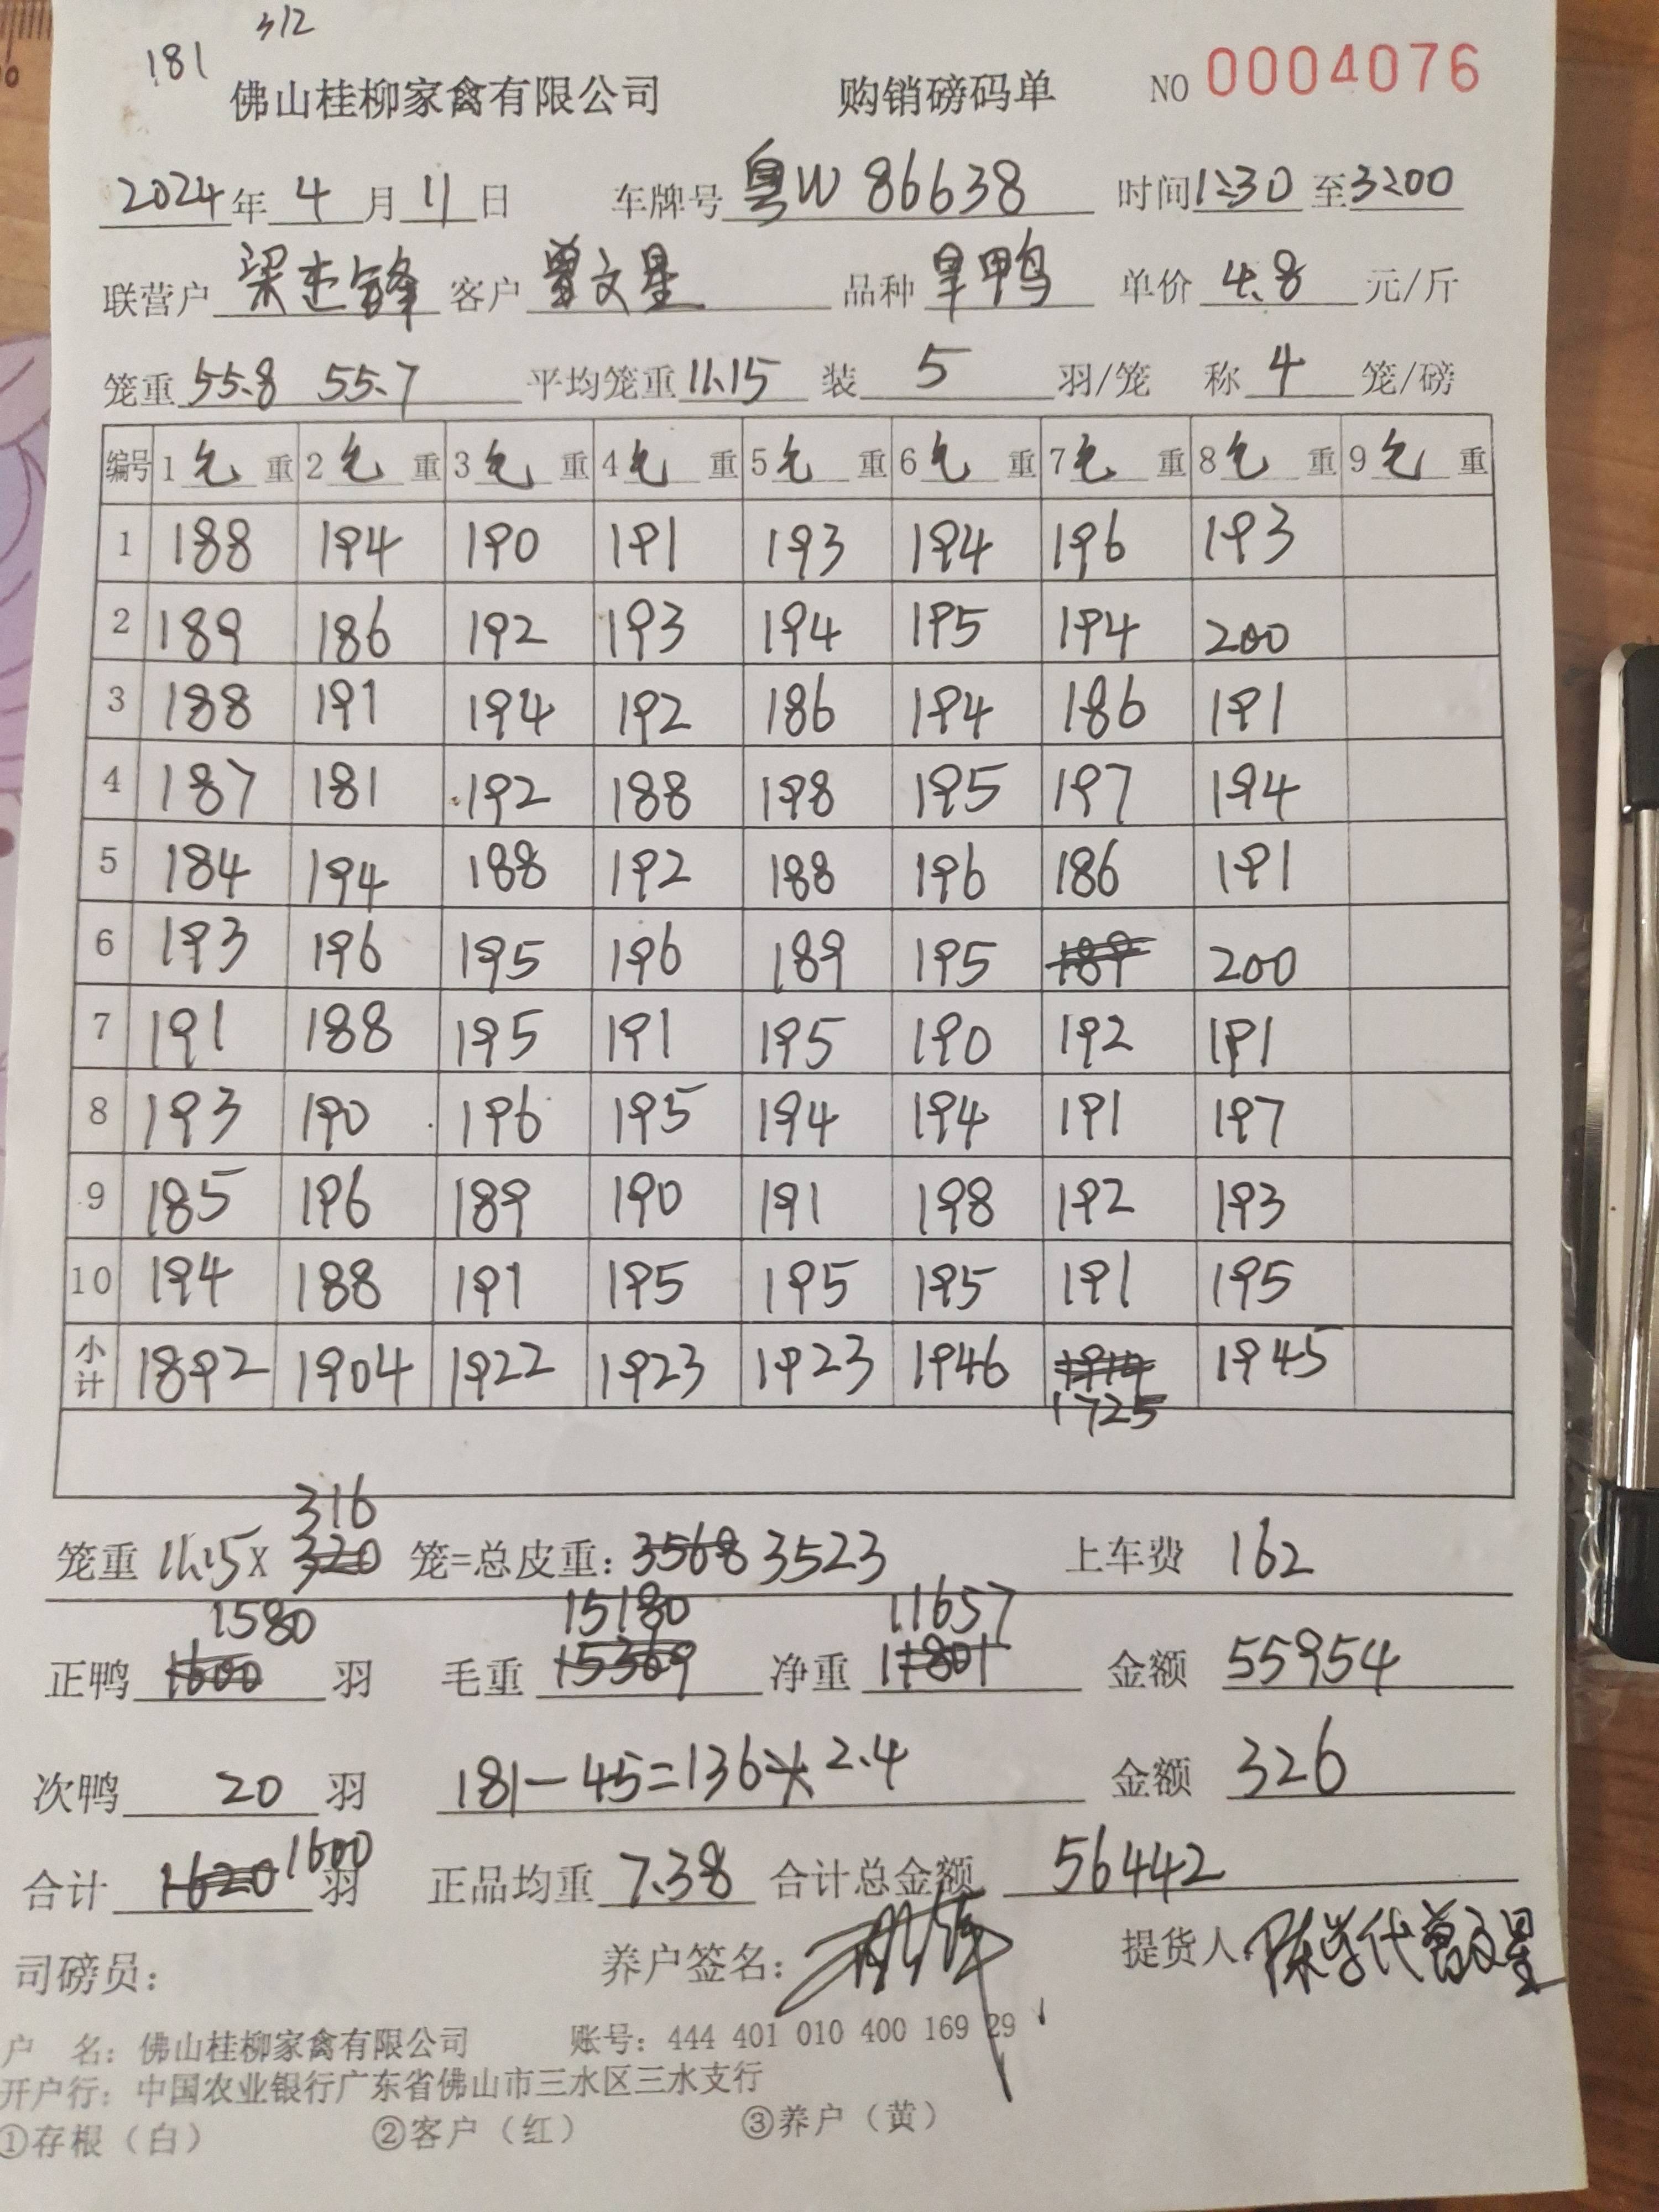 312
181
佛山桂柳家禽有限公司 购销磅码单 NO 0004076
2024年 4 月 11 日 车牌号 粤W 86638 时间 1:30 至 3:00
联营户 客户 曾文星 品种 旱鸭 单价 4.8 元/斤
笼重 55.8 55.7 平均笼重 11.15 装 5 羽/笼 称 4 笼/磅
编号 1 毛 重 2 毛 重 3 毛 重 4 毛 重 5 毛 重 6 毛 重 7 毛 重 8 毛 重 9 毛 重
1 188 194 190 191 193 194 196 193
2 189 186 192 193 194 195 194 200
3 188 191 194 192 186 194 186 191
4 187 181 192 188 198 195 197 194
5 184 194 188 192 188 196 186 191
6 193 196 195 196 189 195 189 200
7 191 188 195 191 195 190 192 191
8 193 190 196 195 194 194 191 197
9 185 196 189 190 191 198 192 193
10 194 188 191 195 195 195 191 195
小计 1892 1904 1922 1923 1923 1946 1914 1945
1725
316
笼重 11.15 X 320 笼=总皮重: 3568 3523 上车费 162
1580 15180 11657
正鸭 1600 羽 毛重 15369 净重 11801 金额 55954
次鸭 20 羽 181-45=136×2.4 金额 326
合计 1620 1600 羽 正品均重 7.38 合计总金额 56442
司磅员: 养户签名: 提货人: 陈学代曾文星
户 名: 佛山桂柳家禽有限公司 账号: 444 401 010 400 169 29
开户行: 中国农业银行广东省佛山市三水区三水支行
①存根(白) ②客户(红) ③养户(黄)